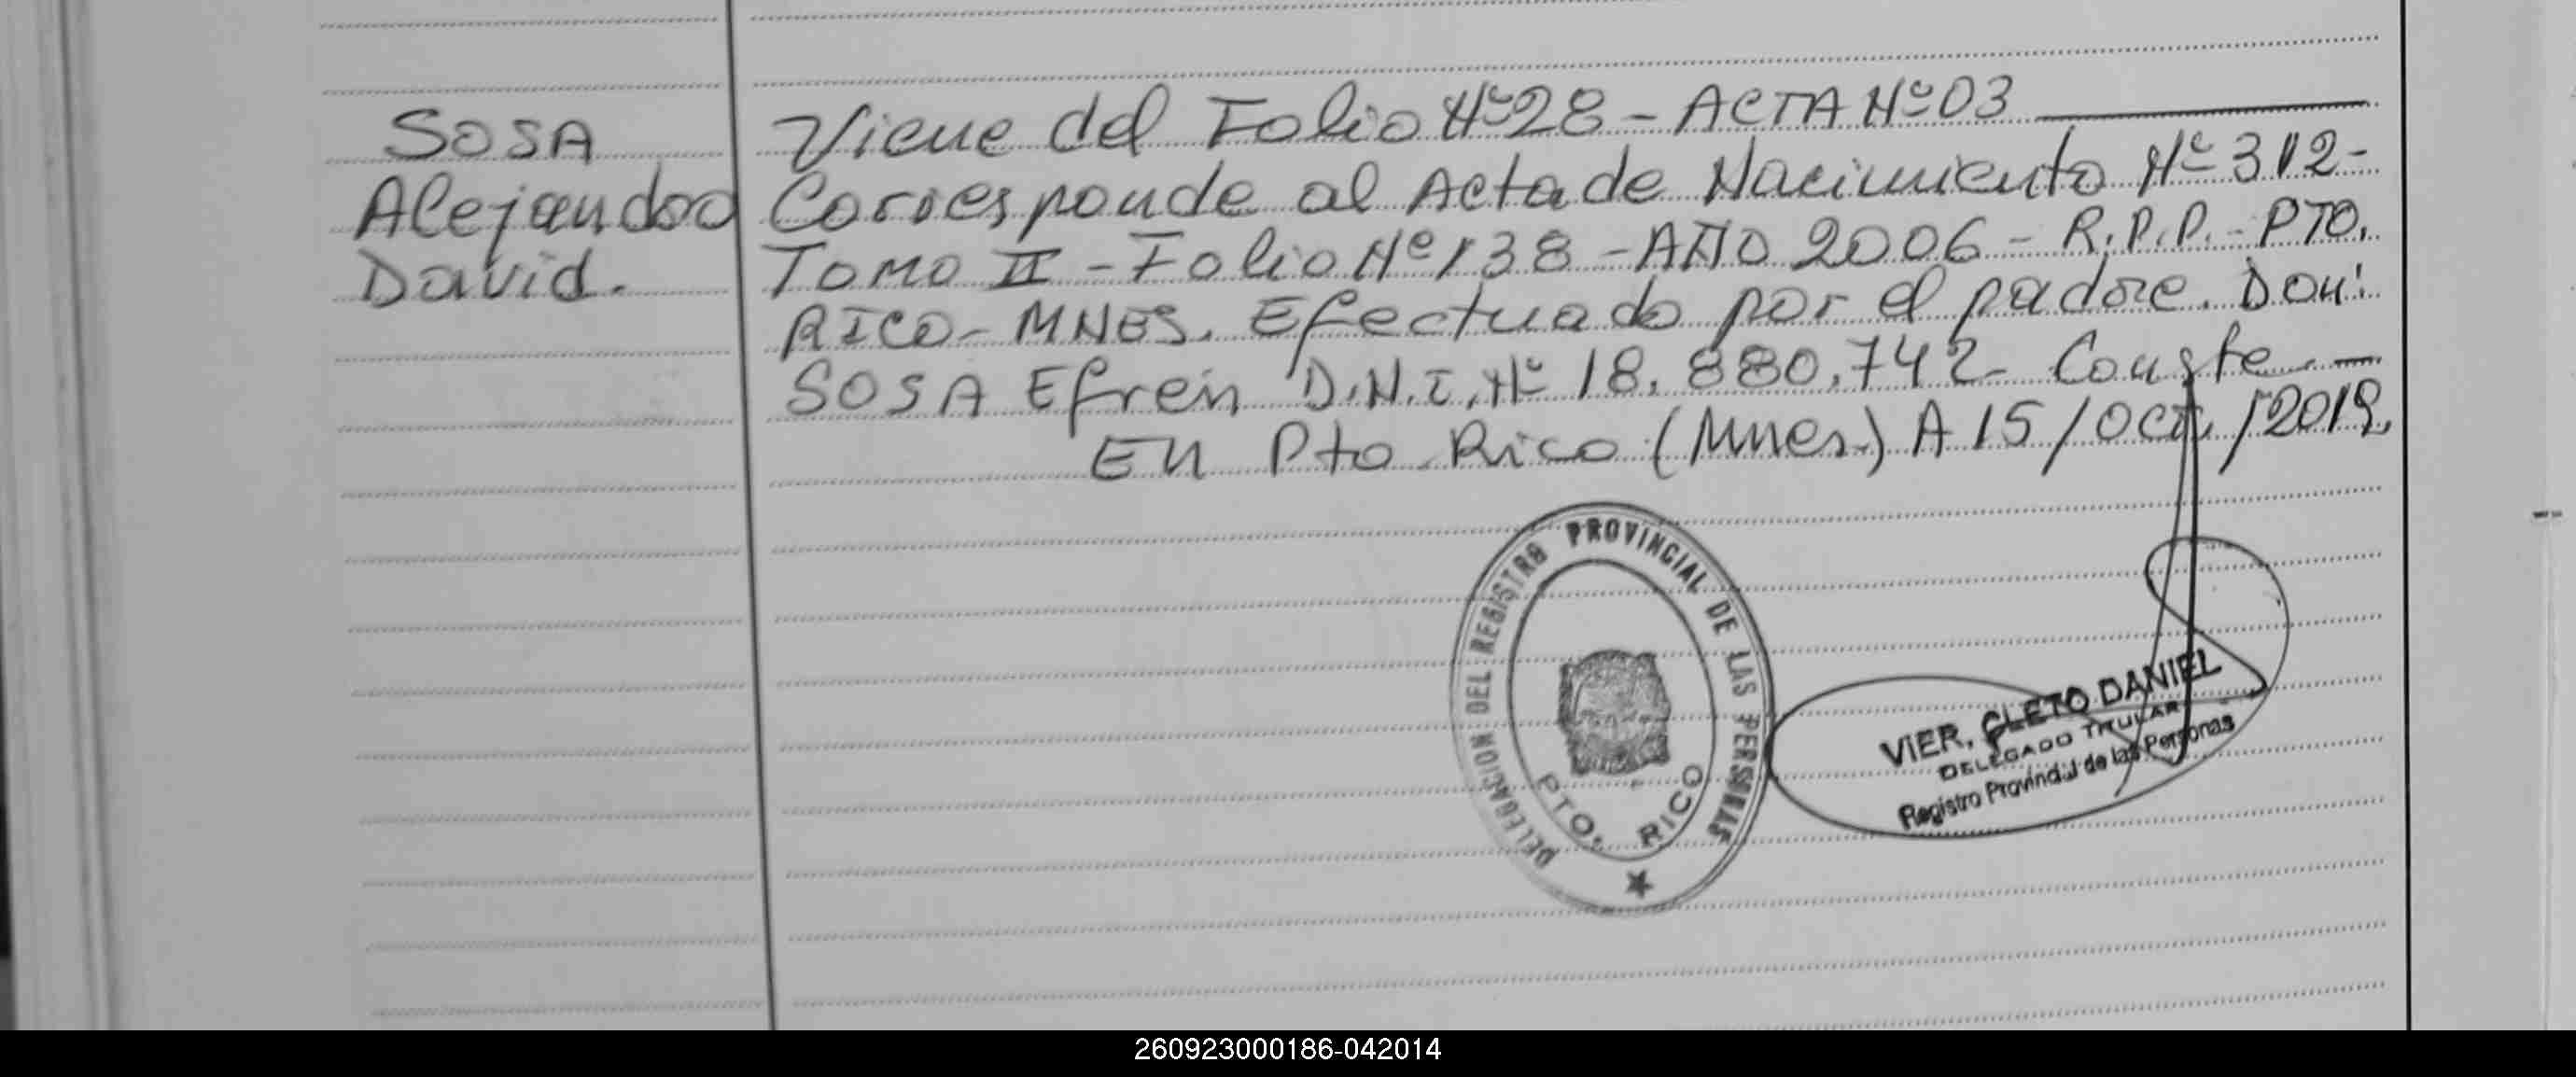 SOSA
Alejandro
David.
Viene del Folio Nº 28 - ACTA Nº 03
Corresponde al Acta de Nacimiento Nº 312-
TOMO II - Folio Nº 138 - AÑO 2006 - R.P.P. - PTO.
RICO - MNES. Efectuado por el padre. Don:
SOSA Efrén D.N.I. Nº 18.880.742 - Conste.
En Pto Rico (Mnes.) A 15/Oct/2019.
DELEGACION DEL REGISTRO PROVINCIAL DE LAS PERSONAS
PTO. RICO
VIER, CLETO DANIEL
DELEGADO TITULAR
Registro Provincial de las Personas
260923000186-042014